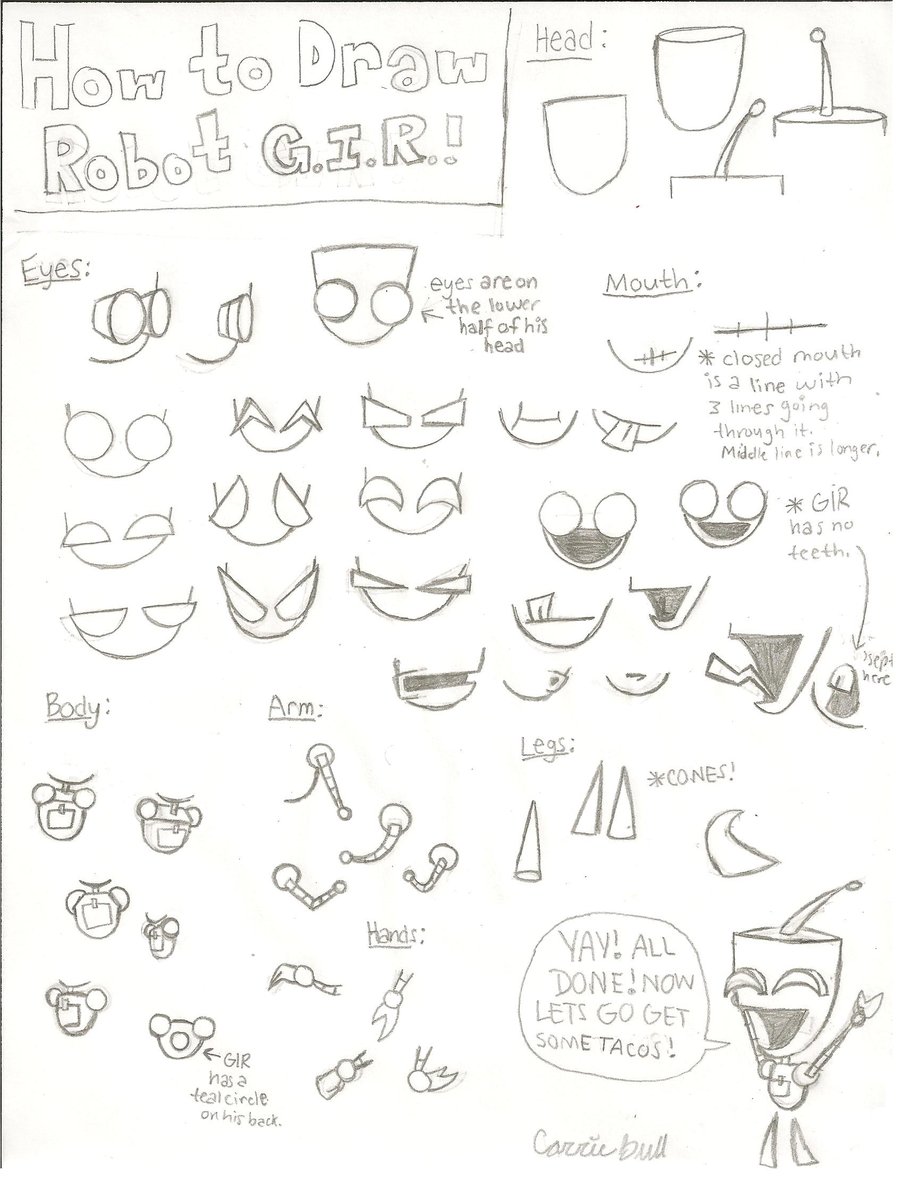 How to Draw
Robot G.I.R.!
Head:
Eyes:
eyes are on
the lower
half of his
head
Mouth:
* closed mouth
is a line with
3 lines going
through it.
Middle line is longer.
* GIR
has no
teeth.
'sept
here
Body:
GIR
has a
teal circle
on his back.
Arm:
Hands:
Legs:
*CONES!
YAY! ALL
DONE! NOW
LETS GO GET
SOME TACOS!
Carrie bull